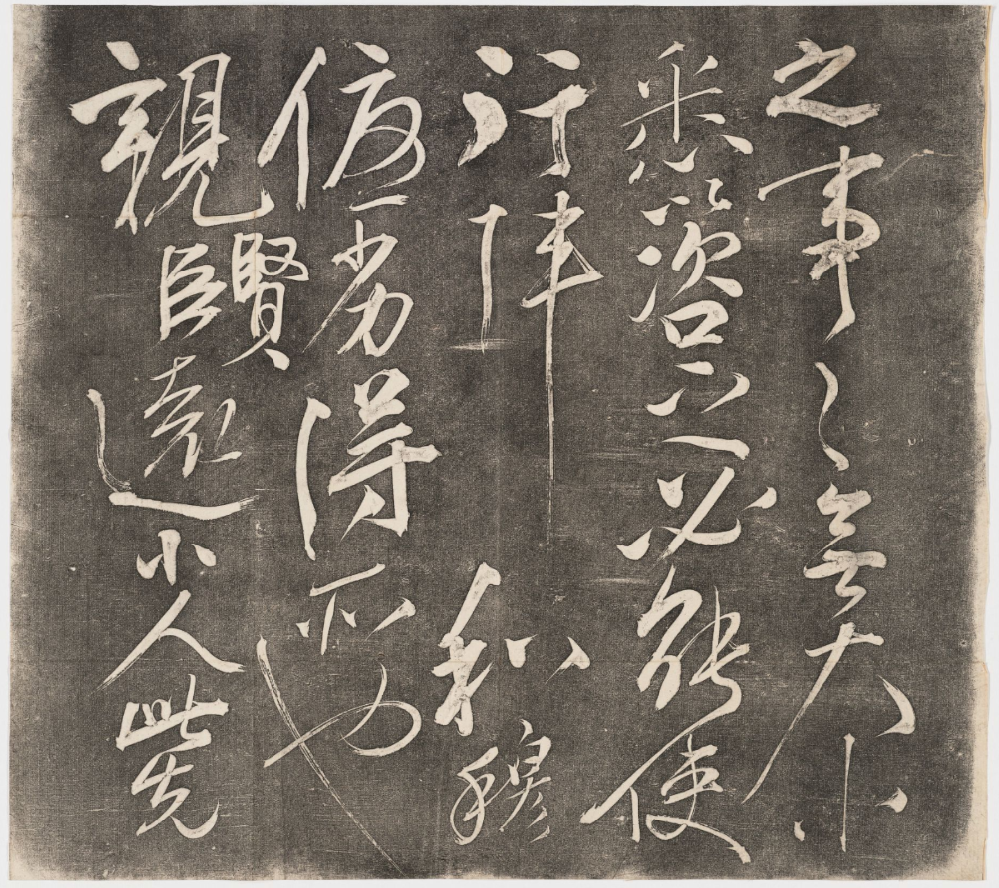 之事〻無大小
悉以咨之必能使
行陣和穆
優劣得所也
親賢臣遠小人此先